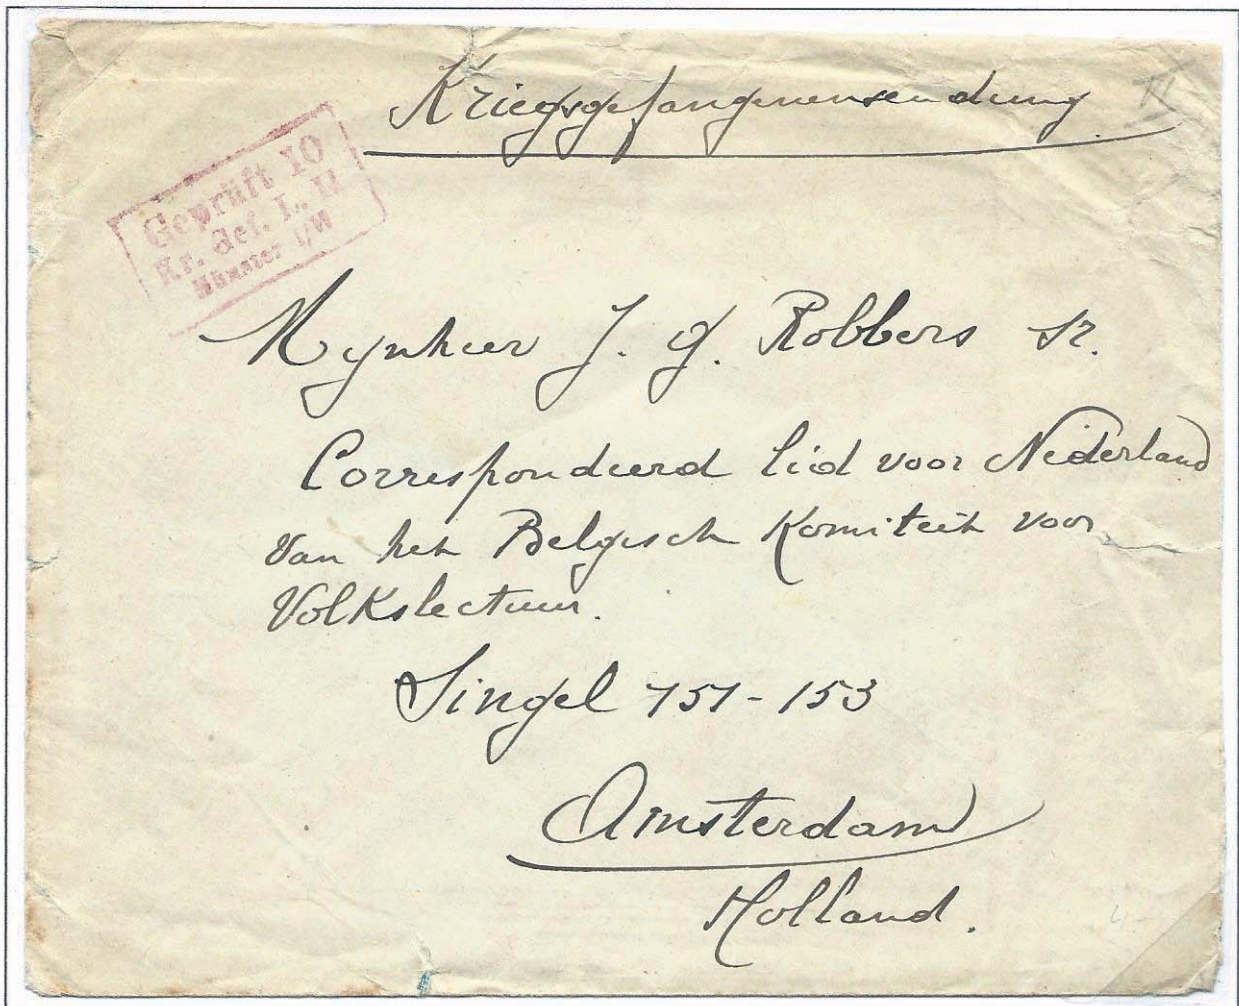 Kriegsgefangenensendung.
Geprüft 10
Kr. Gef. L. II
Münster i/W
Mynheer J. G. Robbers Sr.
Correspondeerd lid voor Nederland
Van het Belgisch Komiteit voor
Volkslectuur.
Singel 151-153
Amsterdam
Holland.